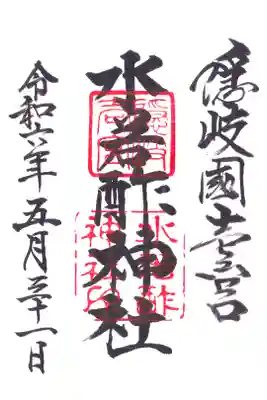 隠岐國壱宮
水若酢神社
令和六年五月三十一日
水若酢
神社印